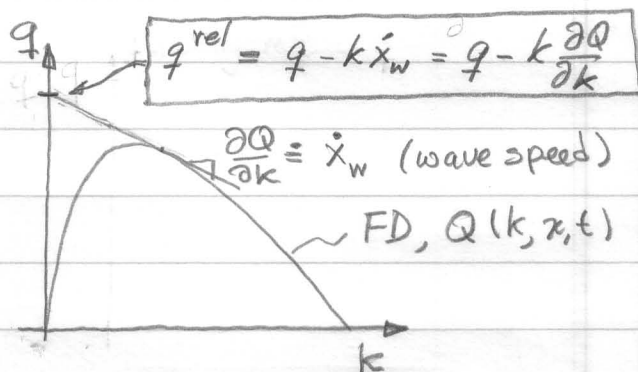 q
q^rel = q - kẋ_w = q - k ∂Q/∂k
∂Q/∂k ≡ ẋ_w (wave speed)
FD, Q(k, x, t)
k